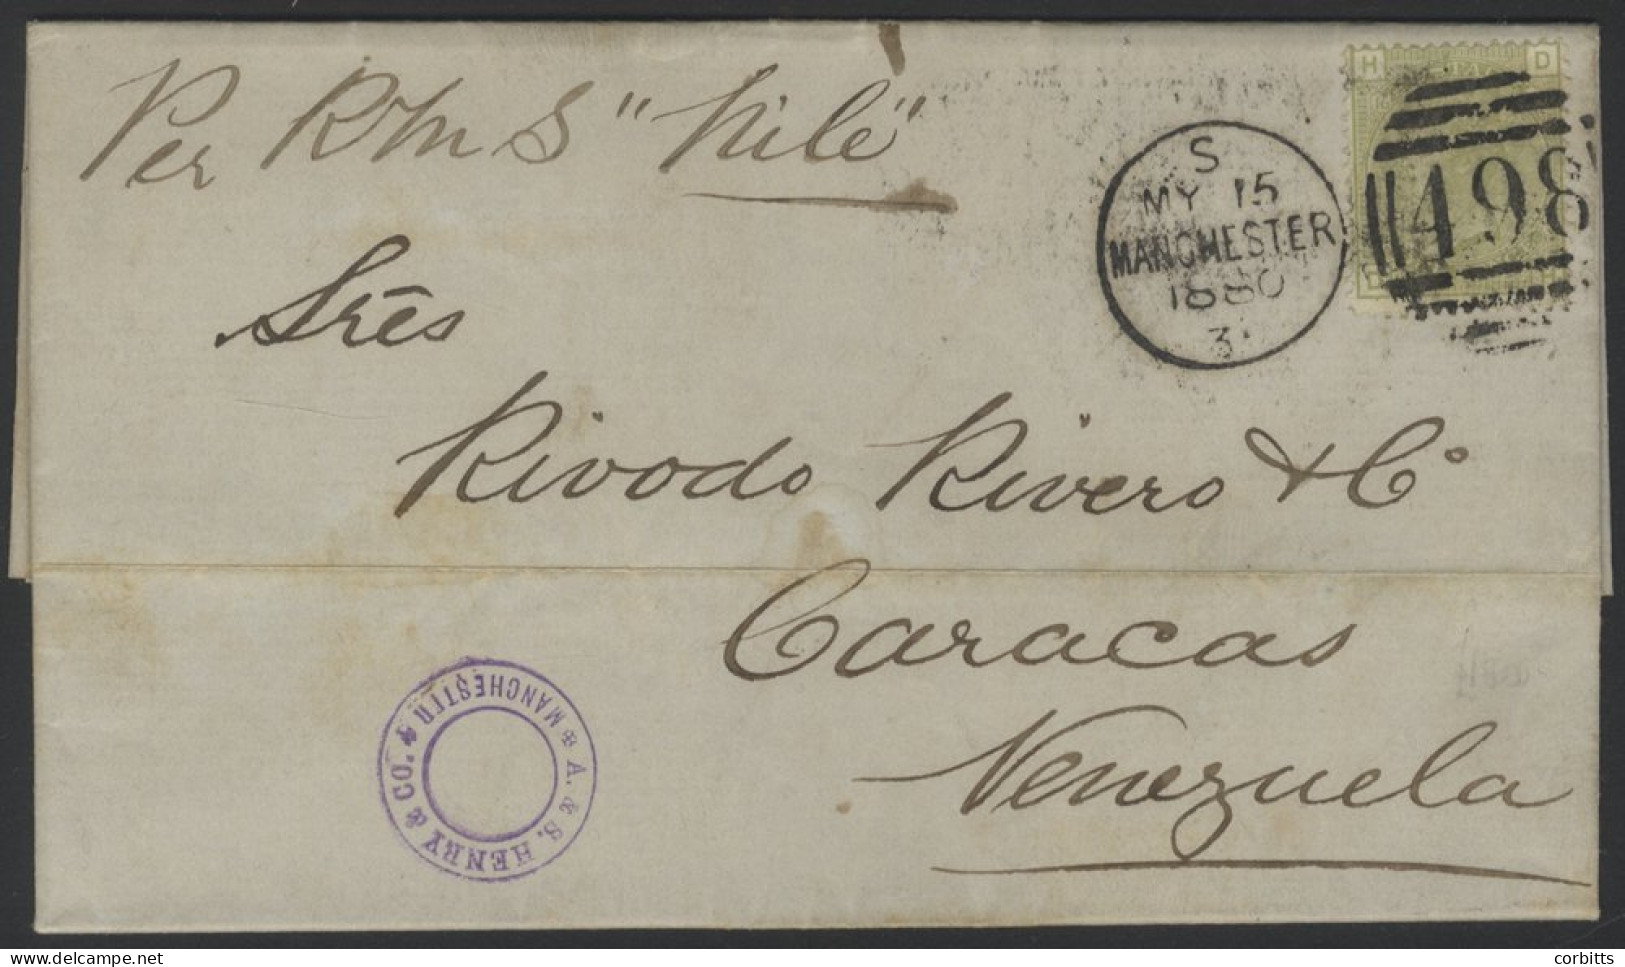 Per RMS "Nile"
H D
S
MY 15
MANCHESTER
1880
3
498
Srēs
Rivodo Rivero & Co
Caracas
Venezuela
A. & S. HENRY & CO. MANCHESTER
delcampe.net
corbitts